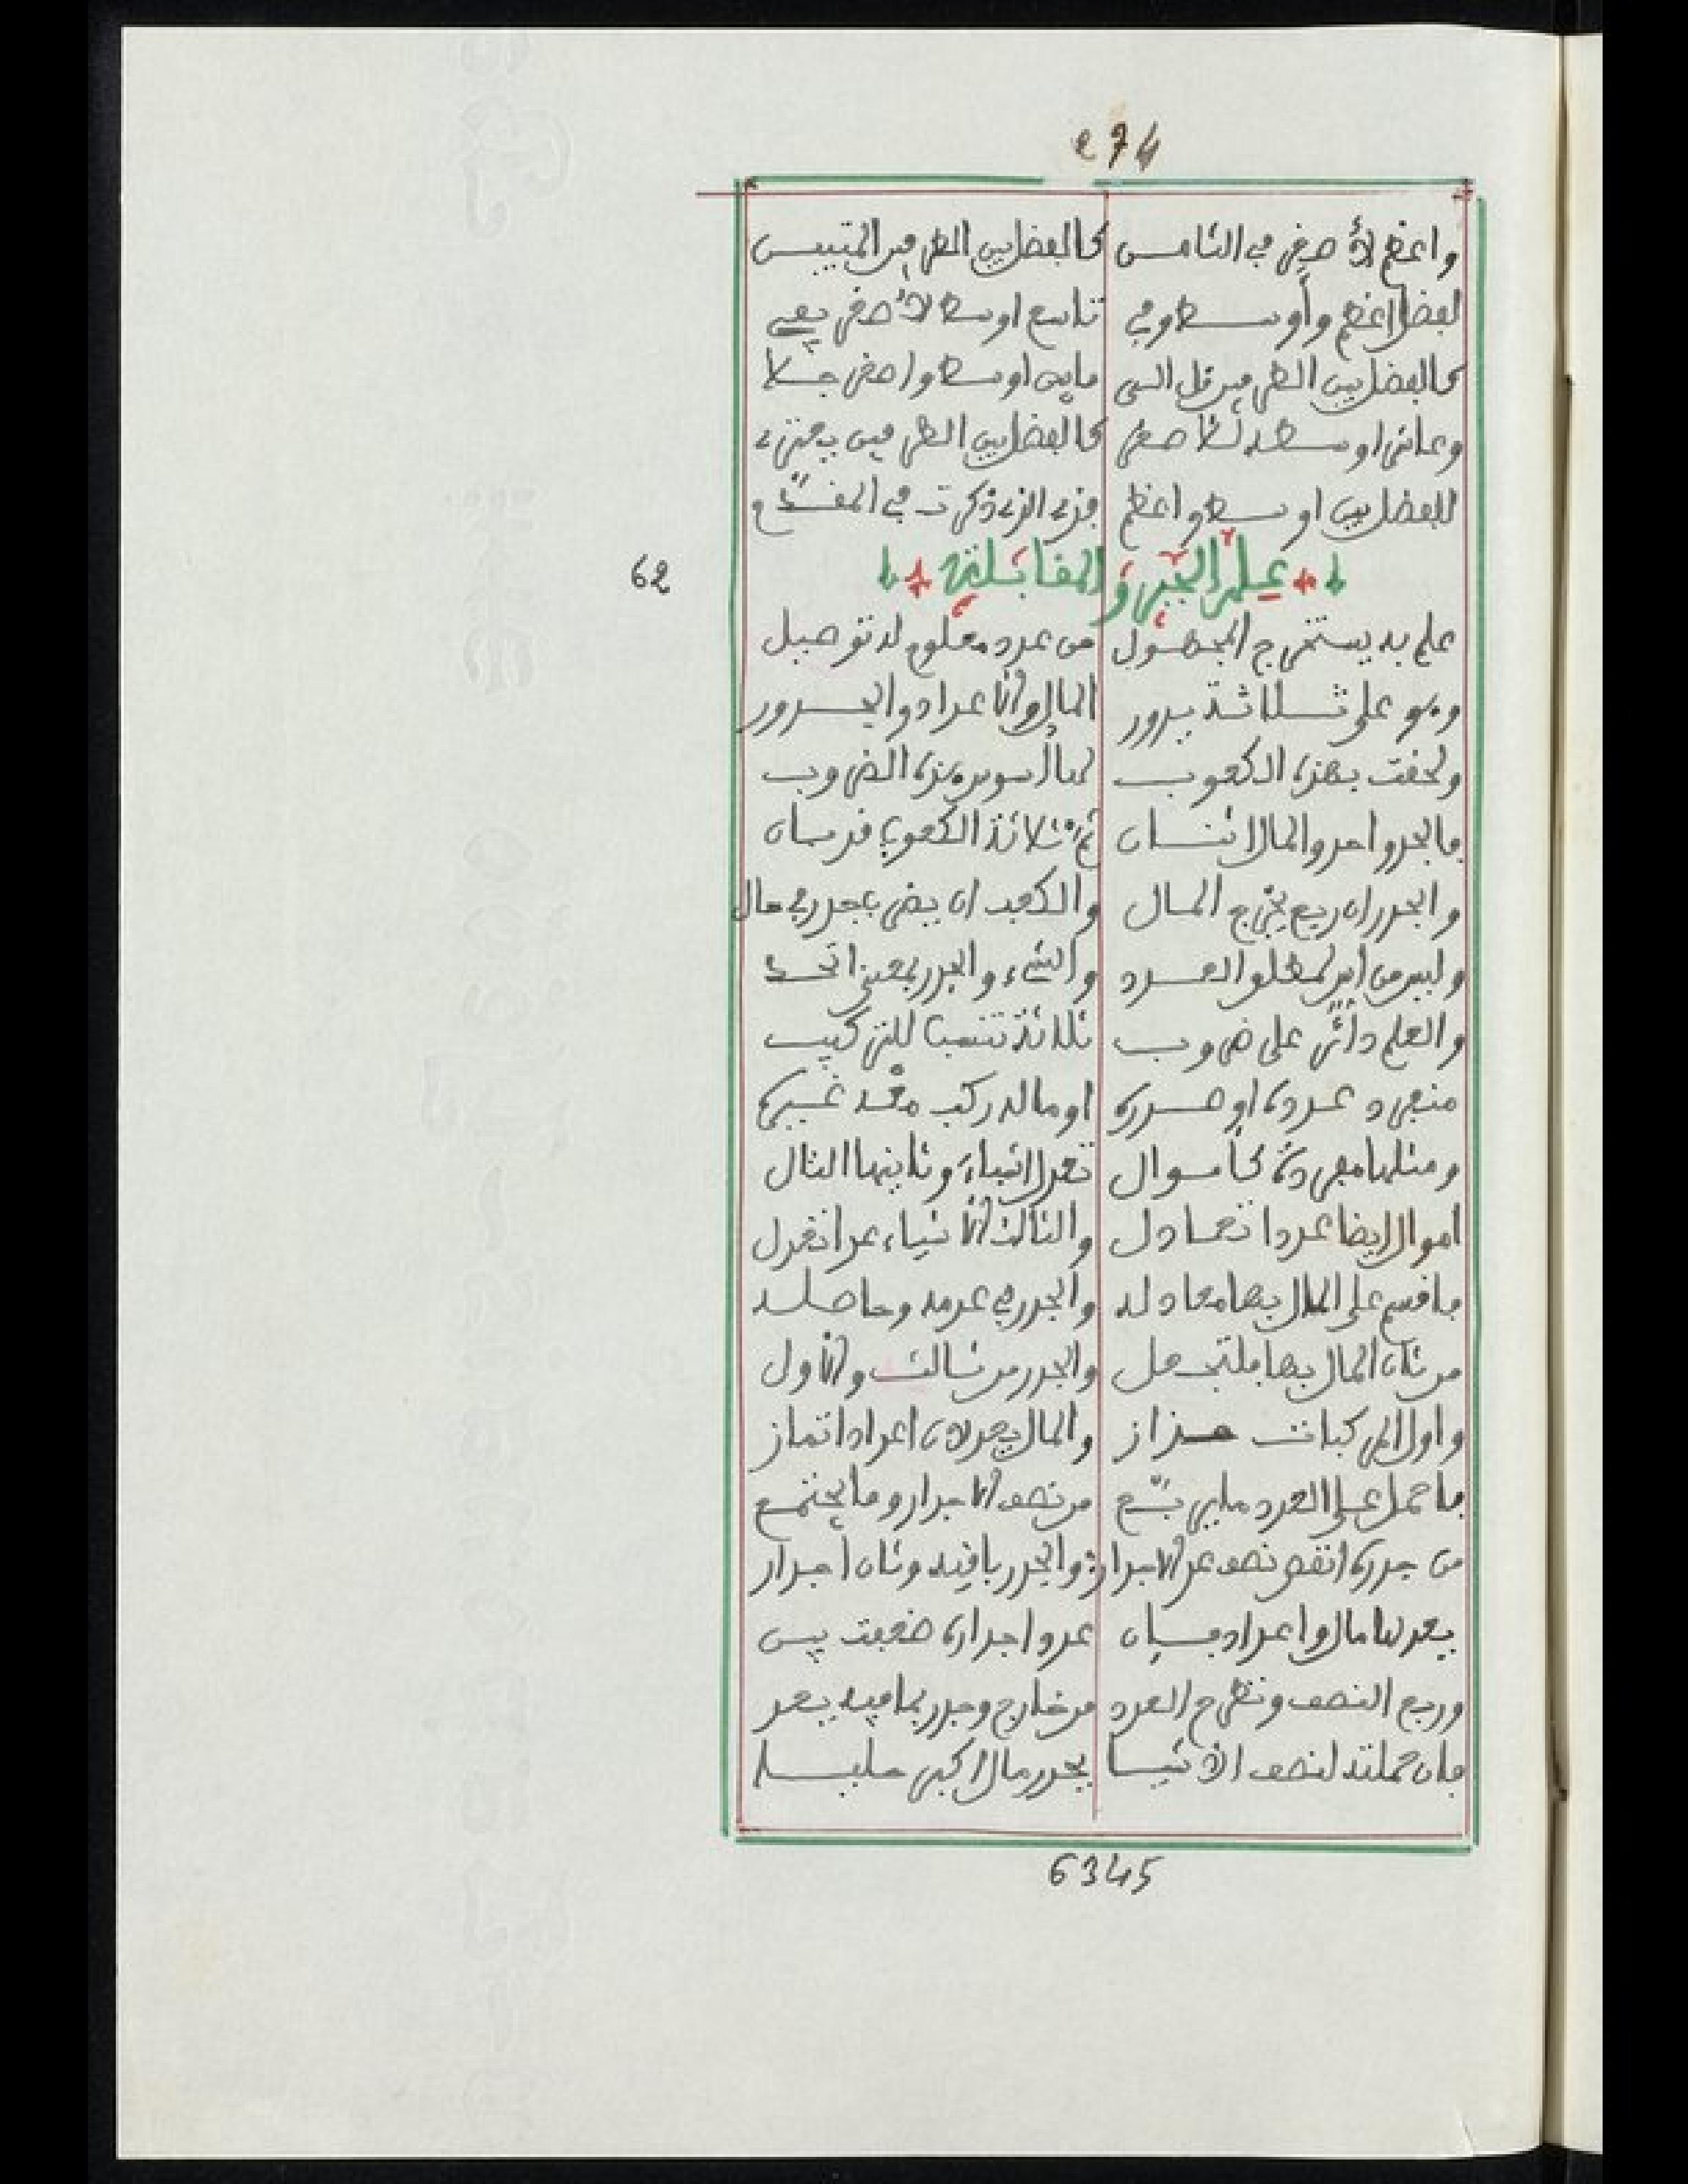 274
واعظم لأصغر في الثامن كالفضل بين الطرفين
لفضل اعظم وأوسط وفي تاسع اوسط لأصغر يفي
كالفضل بين الطرفين مابين اوسط واصغر جلا
وعاشر اوسط لاصغر كالفضل بين الطرفين
للفضل بين اوسط واعظم ذكرت في
62
علم الجبر والمقابلة
علم به يستخرج المجهول من عدد معلوم له توصيل
وهو على ثلاثة يدور المال والأعداد والجدور
ولحقت بهذه الكعوب لمال سوى هذه الضروب
فالجدر واحد والمال اثنان ثم ثلاثة الكعوب
والجدر ان ربع يخرج المال والكعب ان يضرب جدر في مال
وليس من اس لمطلق العدد والشيء والجدر بمعنى اتحد
والعلم دائر على ضروب ثلاثة تنسب للتركيب
منفرد عدده او جدره او ماله ركب معه غيره
ومثلها مفردة كأموال تعدل اشياء وثانيها التال
اموال ايضا عددا تعادل والثالث الأشياء عدا تعدل
فاقسم على المال بها معادله والجدر في عدمه وحاصله
من ثان المال بها فلتجعل والجدر من ثالث والأول
واول المركبات والمال يعدلان اعدادا تماز
فاحمل على العدد مربع من نصف الأجدار وما يجتمع
من جدره انقص نصف عد الأجدار والجدر باقيه وثان اجدار
يعدلها مال واعداد عد اجداره
وربع النصف وتطرح العدد من خارج وجدر بما فيه يعد
فان حملته لنصف الاشيا بجدر مال اكبر
6345